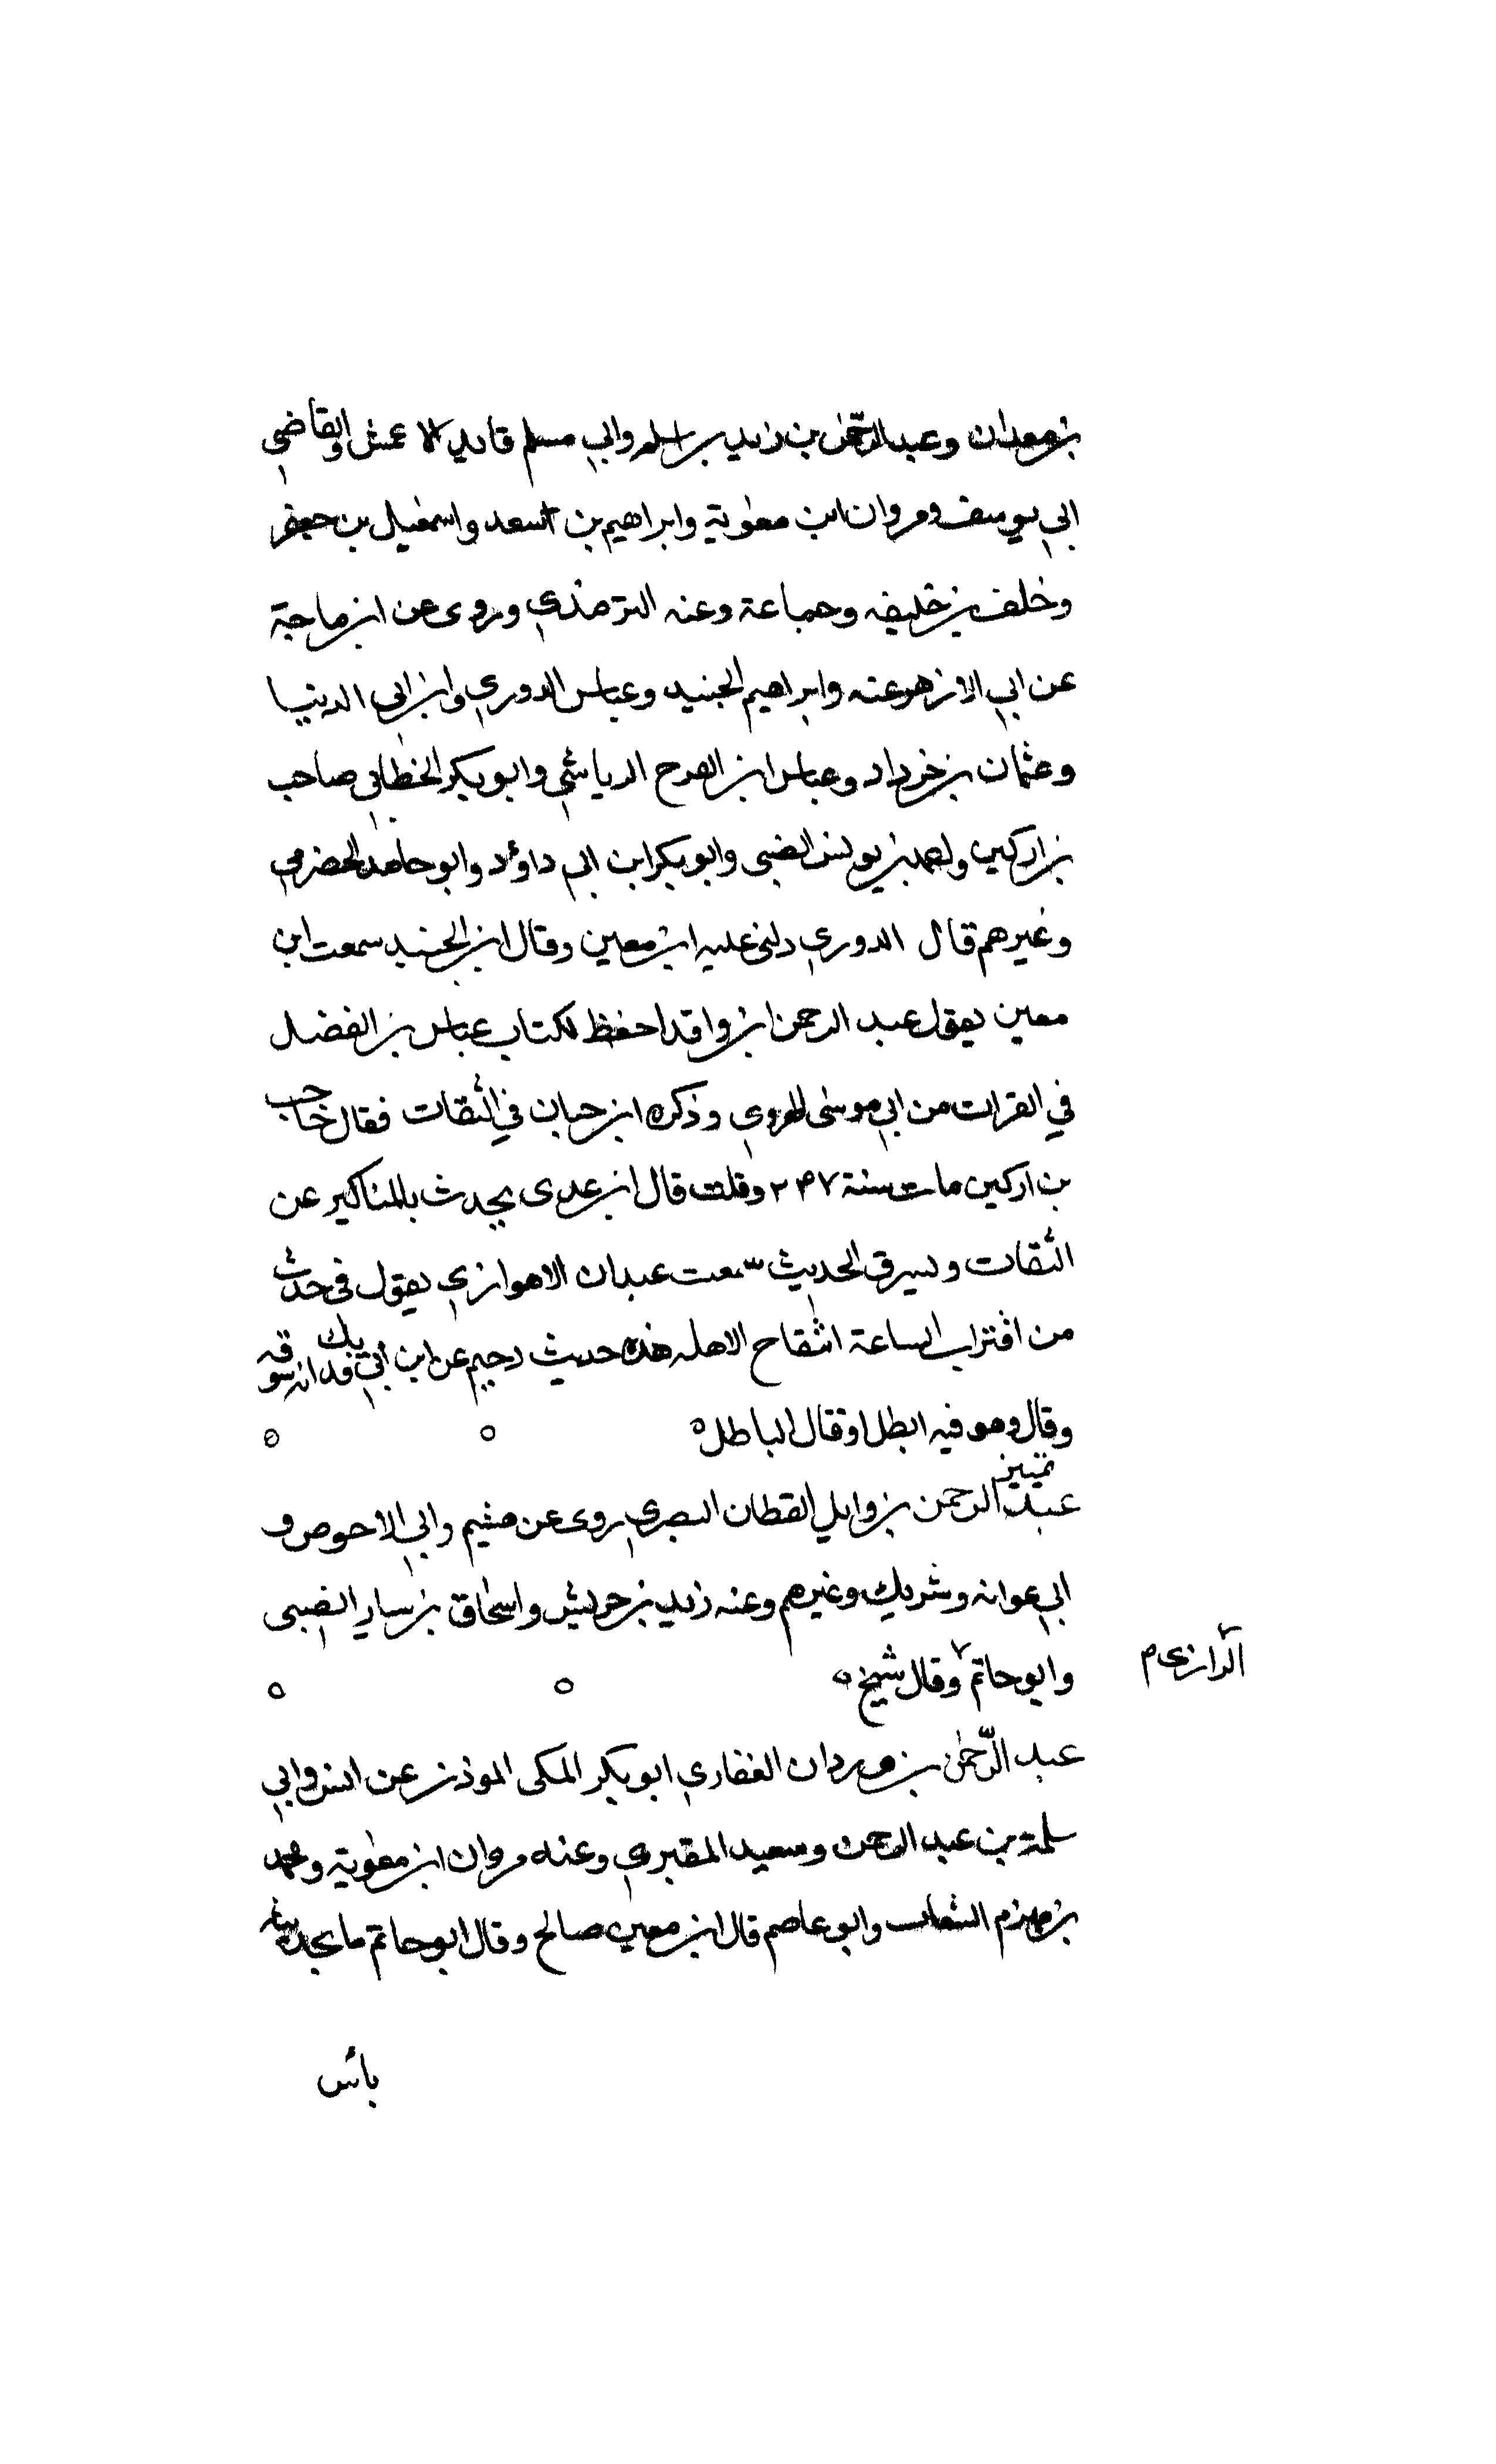 بن معدان وعبد الرحمٰن بن زيد بن اسلم وابي مسلم قايد الاعمش والقاضي
ابي يوسف ومروان ابن معٰوية وابراهيم بن اسعد واسمٰعيل بن جعفر
وخلف بن خليفه وجماعة وعنه الترمذي وروى عن ابن ماجة
عن ابي الازهر عنه وابراهيم الجنيد وعباس الدوري وابن ابي الدنيا
وعثمان بن خرداد وعباس ابن الفرح الرياشي وابو بكر الخطابي صاحب
بن اركين ومحمد بن يونس الضبي وابو بكر ابن ابي داؤد وابو حامد الحضرمي
وغيرهم قال الدوري دلني عليه ابن معين وقال ابن الجنيد سمعت ابن
معين يقول عبد الرحمن ابن واقد احفظ لكتاب عباس بن الفضل
في القرات من ابي موسٰى الهروي وذكره ابن حبان في الثقات فقال خاحب
بن اركين مات سنة ٢٣٧ وقلت قال ابن عدى يحدث بالمناكير عن
الثقات ويسرق الحديث سمعت عبدان الاهوازي يقول فى حدث
من اقتراب الساعة انثقاح الاهله هذه حديث دحيم عن ابن ابي فديك انه سوقه
وقال وهو فيه ابطل اوقال الباطل ٥
تمييز
عبد الرحمن بن وايلي القطان البصري روى عن هشيم وابي الاحوص و
ابي عوانه وشريك وغيرهم وعنه زيد بن حريش واسحٰق بن سيار الضبى
وابو حاتم ٧ وقال شيخ ٥
الرازى م
عبد الرّحمٰن بن وردان الغفاري ابو بكر المكى الموذن عن انس وابي
سلمة بن عبد الرحمن وسعيد المقبري وعنه مروان ابن معٰوية ومحمد
بن مهزم الشعاب وابو عاصم قال ابن معين صالح وقال ابو حاتم ما بحديثه
بأس